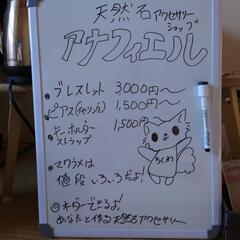 天然石アクセサリー
ショップ
アナフィエル
ブレスレット 3,000円〜
ピアス(イヤリング) 1,500円〜
キーホルダー 1,500円〜
ストラップ
マクラメは
値段いろいろだよ!
ちくわ
◎オーダーできるよ!
あなたと作る天然石アクセサリー